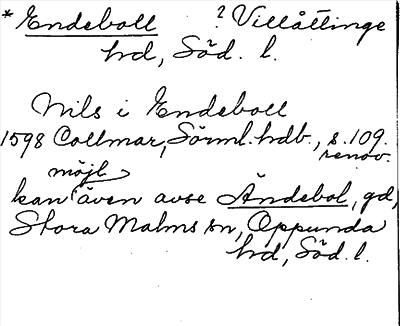 * Endeboll ? Villåttinge
hd, Söd. l.
Nils i Endeboll
1598 Collmar, Sörml. hdb., s. 109.
renov.
möjl.
kan även avse Ändebol, gd,
Stora Malms sn, Oppunda
hd, Söd. l.